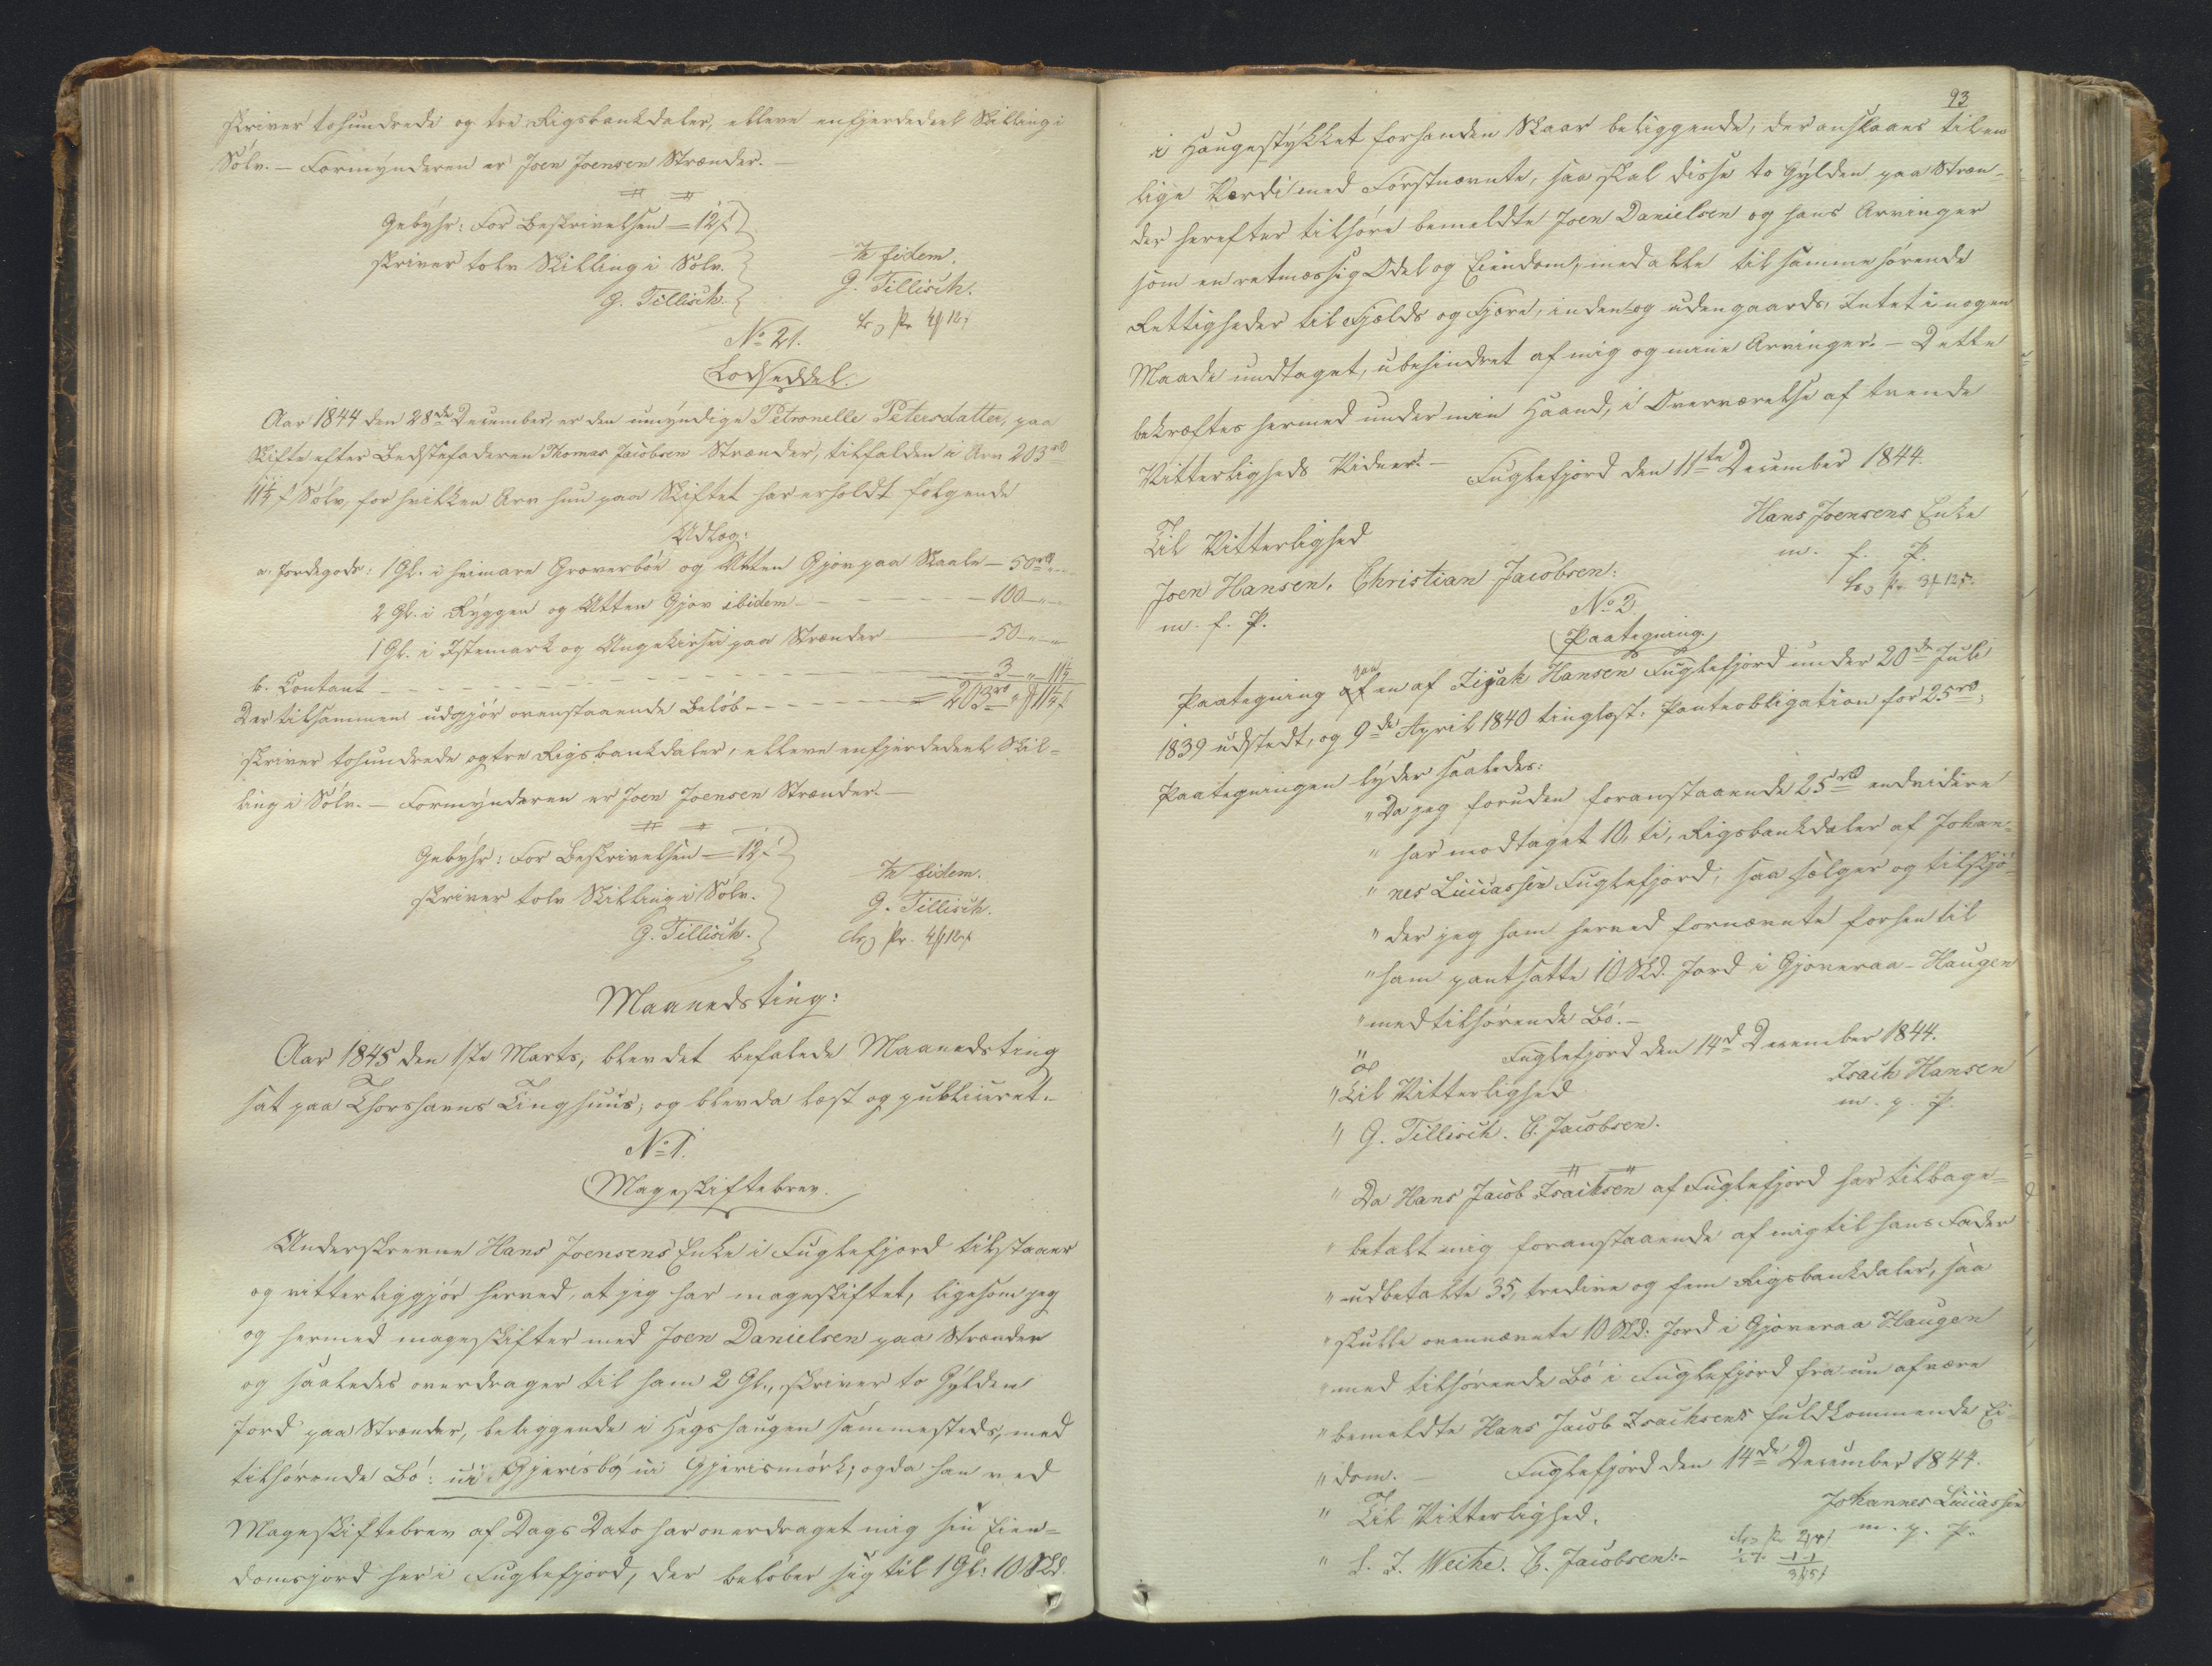 skriver tohundrede og tre Rigsbankdaler, elleve enfjerdedeel Skilling i
Sølv. — Formynderen er Joen Joensen Strænder. —
Gebyhr: For Beskrivelsen = 12 s
skriver tolv Skilling i Sølv.
G. Tillisch.
In fidem.
G. Tillisch.
No 21.
Lodseddel.
Aar 1844 den 28de December, er den umyndige Petronelle Petersdatter, paa
Skifte efter Bedstefaderen Thomas Jacobsen Strænder, tilfalden i Arv 203 rd
11¼ s Sølv, for hvilken Arv hun paa Skiftet har erholdt følgende
Udlæg:
a. Jordegods: 1 Gl. i heimare Groverbøe og Atten Gjov paa Skaale — 50 rd
2 Gl. i Ryggen og Atten Gjov ibidem — 100 —
1 Gl. i Istemark og paa Strænder — 50 —
b. Contant — 3 „ 11¼
Der tilsammen udgjør ovenstaaende Beløb — = 203 rd „ 11¼ s
skriver tohundrede og tre Rigsbankdaler, elleve enfjerdedeel Skil=
ling i Sølv. — Formynderen er Joen Joensen Strænder. —
Gebyhr: For Beskrivelsen = 12 s
skriver tolv Skilling i Sølv.
G. Tillisch.
In fidem.
G. Tillisch.
Maanedsting:
Aar 1845 den 1ste Marts, blev det befalede Maanedsting
sat paa Thorshavns Tinghuus, og blev da læst og publiceret.
No 1.
Mageskiftebrev.
Underskrevne Hans Joensens Enke i Fuglefjord tilstaaer
og vitterliggjør herved, at jeg har mageskiftet, ligesom jeg
og hermed mageskifter med Joen Danielsen paa Strænder
og saaledes overdrager til ham 2 Gl., skriver to Gylden
Jord paa Strænder, beliggende i Hegshaugen sammesteds, med
tilhørende Bø: ui Gjerisbø ui Gjerismørk; og da han ved
Mageskiftebrev af Dags Dato har overdraget mig sin Eien=
domsjord her i Fuglefjord, der beløber sig til 1 Gl: 10 Skd.
93
i Haugestykket forhenden Skaar beliggende, der ansees til en
lige Værdi med Førstnævnte, saa skal disse to Gylden paa Stræn=
der herefter tilhøre bemeldte Joen Danielsen og hans Arvinger
som en retmæssig Odel og Eiendom, med alle til samme hørende
Rettigheder til Fjelds og Fjære, inden og uden gaards, Intet i nogen
Maade undtaget, ubehindret af mig og mine Arvinger. — Dette
bekræftes hermed under min Haand, i Overværelse af tvende
Vitterligheds Vidner. — Fuglefjord den 11te December 1844.
Hans Joensens Enke
m. f. P.
Til Vitterlighed
Joen Hansen, Christian Jacobsen:
m. f. P.
No 2.
Paategning.
Paategning paa en af Isak Hansen Fuglefjord under 20de Juli
1839 udstedt, og 9de April 1840 tinglæst, Panteobligation for 25 rd,
Paategningen lyder saaledes:
„ Da jeg foruden foranstaaende 25 rd endvidere
„ har modtaget 10, ti, Rigsbankdaler af Johan=
„ nes Lucassen Fuglefjord, saa sælger og tilskjø=
„ der jeg ham herved fornævnte forhen til
„ ham pantsatte 10 Skd. Jord i Gjoveraa-Haugen
„ med tilhørende Bø. —
„ Fuglefjord den 14d December 1844.
Isach Hansen
m. p. P.
„ Til Vitterlighed
„ G. Tillisch. C. Jacobsen.
„ Da Hans Jacob Isachsen af Fuglefjord har tilbage=
„ betalt mig foranstaaende af mig til hans Fader
„ udbetalte 35, tredive og fem Rigsbankdaler, saa
„ skulle ovennævnte 10 Skd. Jord i Gjoveraa Haugen
„ med tilhørende Bø i Fuglefjord fra nu af være
„ bemeldte Hans Jacob Isachsens fuldkommende Ei=
„ dom. — Fuglefjord den 14de December 1844.
Johannes Lucassen
m. p. P.
„ Til Vitterlighed.
„ J. Weihe. C. Jacobsen: —